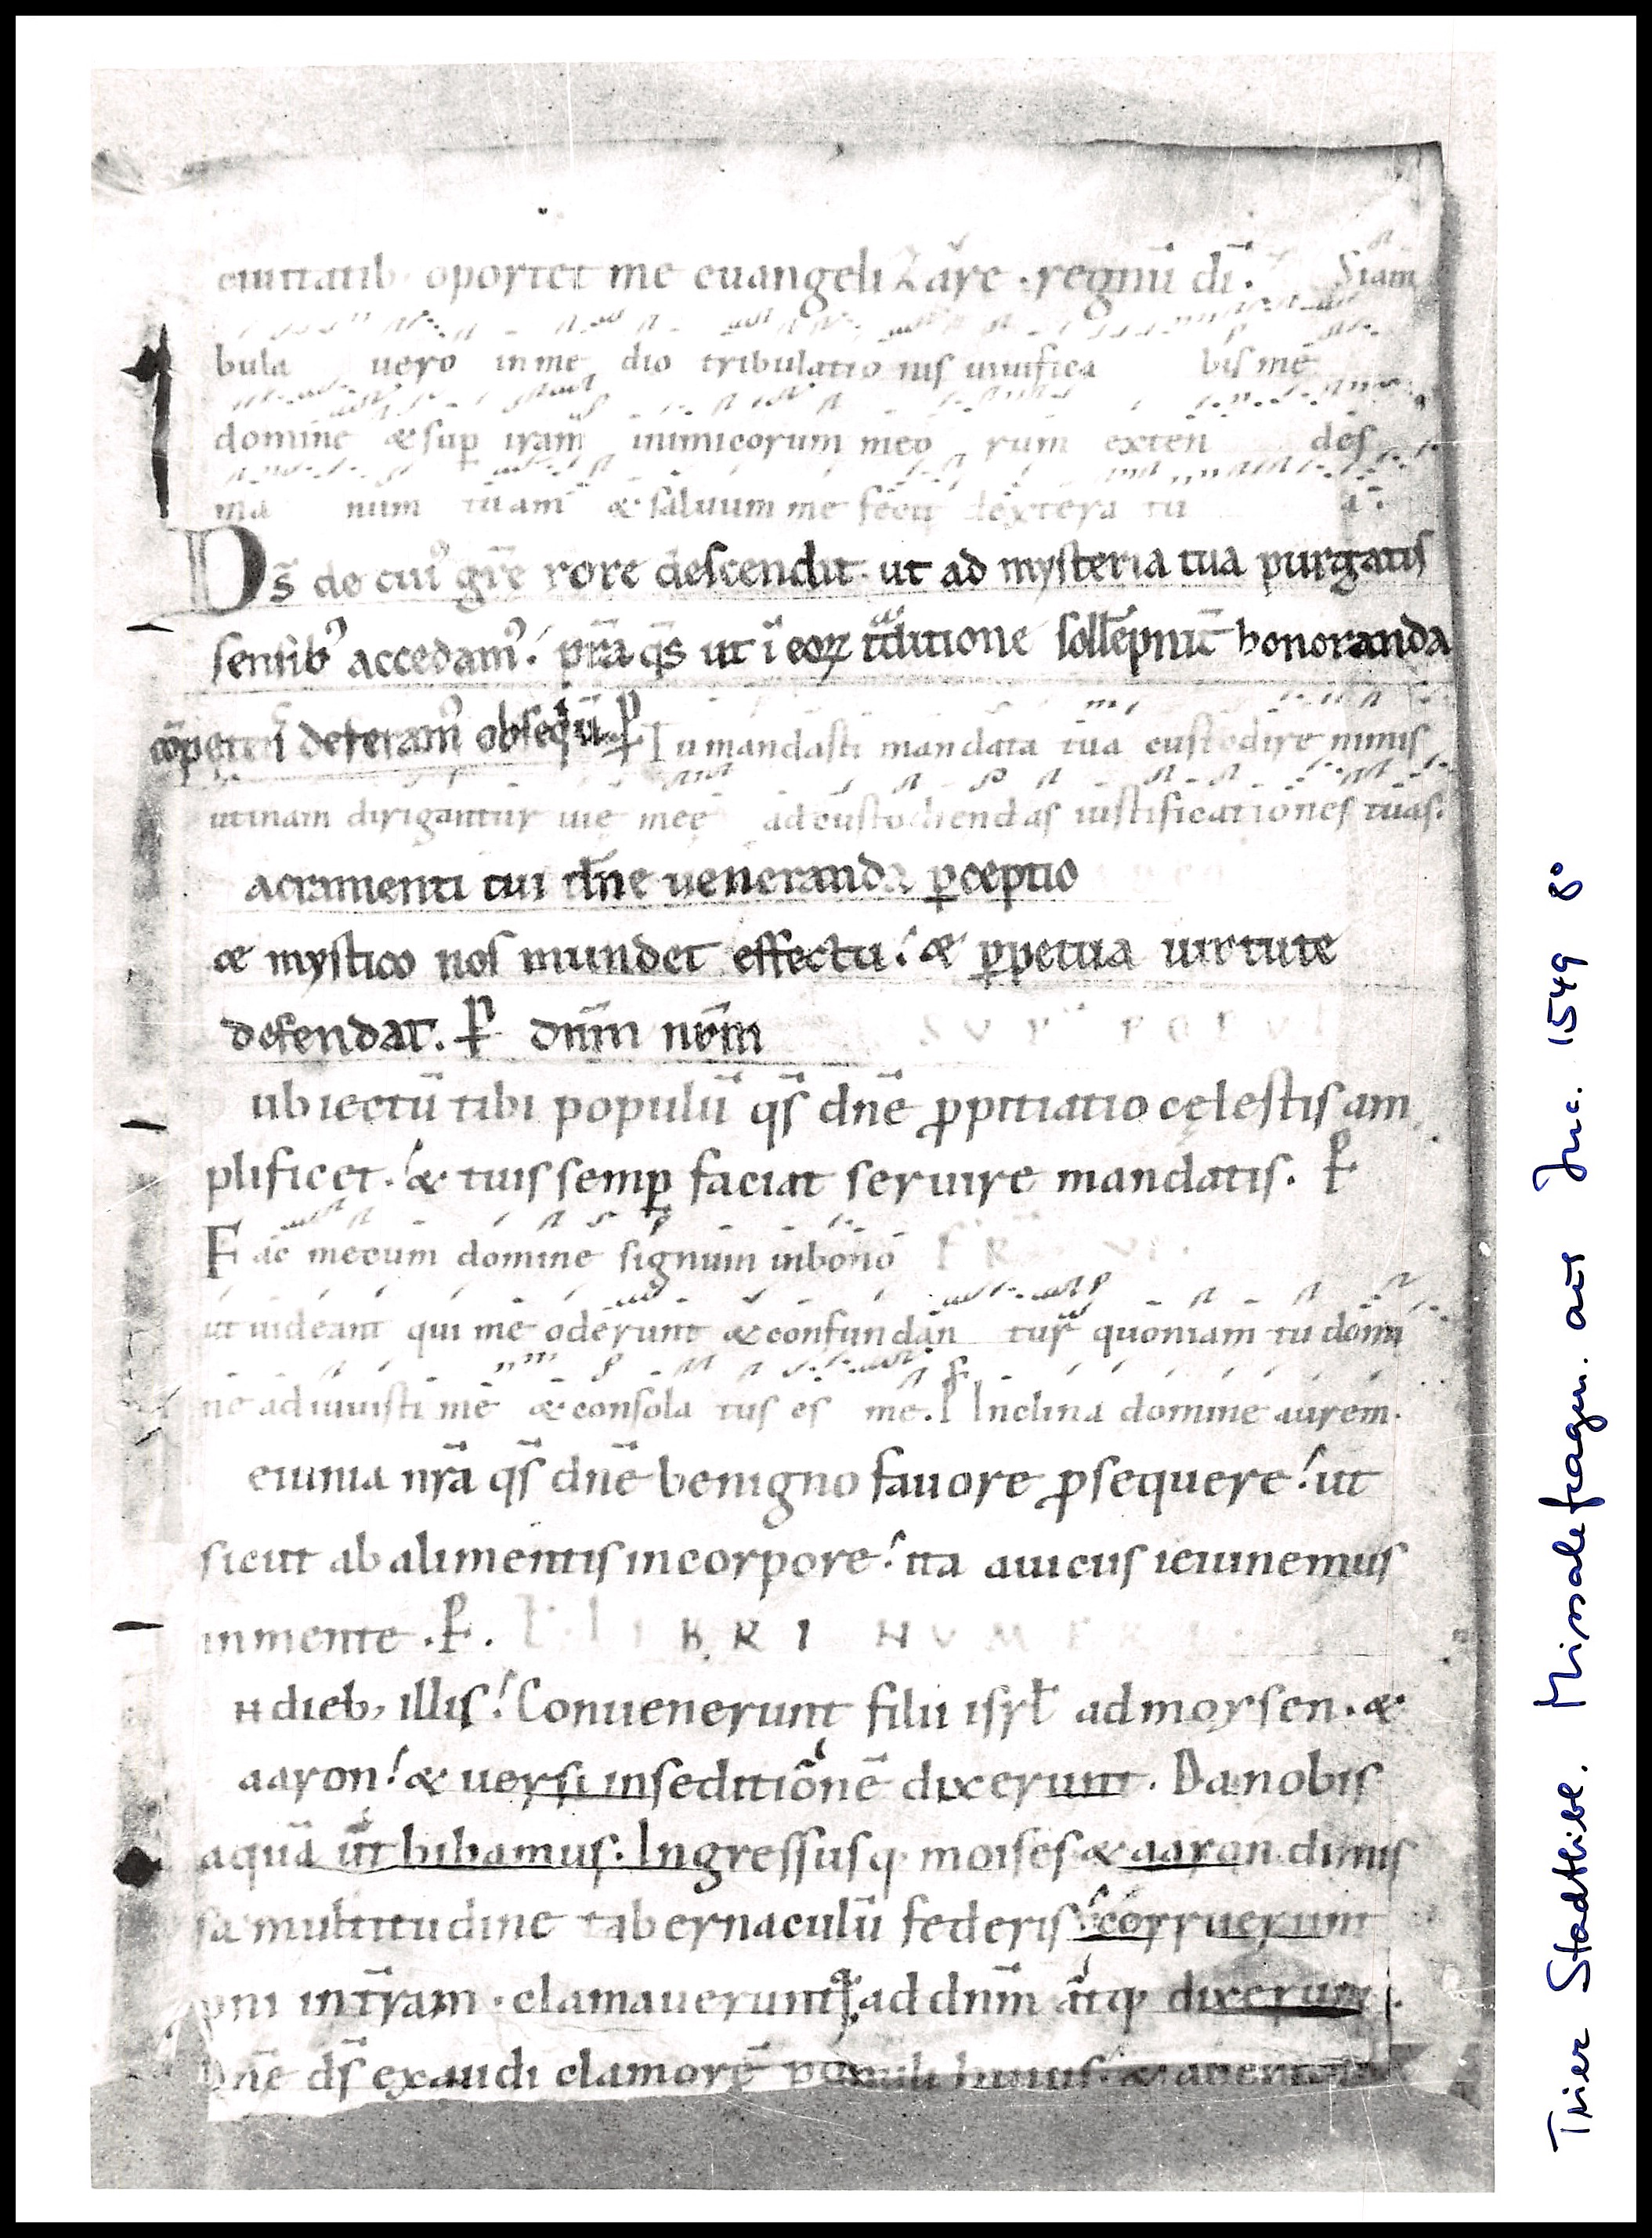 ciuitatib; oportet me euangelizare . regnū dī. Siam
bula uero in me dio tribulatio nis uiuifica bis me
domine & suꝑ iram inimicorum meo rum exten des
ma num tuam & saluum me fecit dextera tu a.
Ds̄ de cui᾽ gr̄e rore descendit. ut ad mysteria tua purgatis
sensib᾽ accedam᾽. pr̄a qs̄ ut ī eoꝝ tͣditione sollēpnit̄ honoranda
cōpetens deferam᾽ obseqiū. P̱ Tu mandasti mandata tua custodire nimis
utinam dirigantur uię meę ad custodiendas iustificationes tuas.
acramenti tui dn̄e ueneranda ꝑceptio
& mystico nos mundet effectu. & ꝑpetua uirtute
defendat. P̱ dn̄m nr̄m SVP POPVL
ubiectū tibi populū qs̄ dn̄e ꝓpitiatio cęlestis am
plificet. & tuis semꝑ faciat seruire mandatis. P̱
Fac mecum domine signum in bono FR VI.
ut uideant qui me oderunt & confundan tur quoniam tu domi
ne adiuuisti me & consola tus es me. P̱ Inclina domine aurem.
eiunia nr̄a qs̄ dn̄e benigno fauore ꝓsequere. ut
sicut ab alimentis in corpore. ita a uiciis ieiunemus
in mente . P̱. L. LIBRI NVMERI
N dieb; illis. Conuenerunt filii isrl̄ ad moysen. &
aaron. & uersi in seditionē dixerunt. Da nobis
aquā ut bibamus. Ingressusq; moises & aaron dimis
sa multitudine tabernaculū federis. corruerunt
pni in tr̄am . clamaueruntq; ad dnm̄ atq; dixerunt.
Dn̄e ds̄ exaudi clamorē populi huius. & aperi
Trier Stadtbibl. Missalefragm. aus Inc. 1549 8°